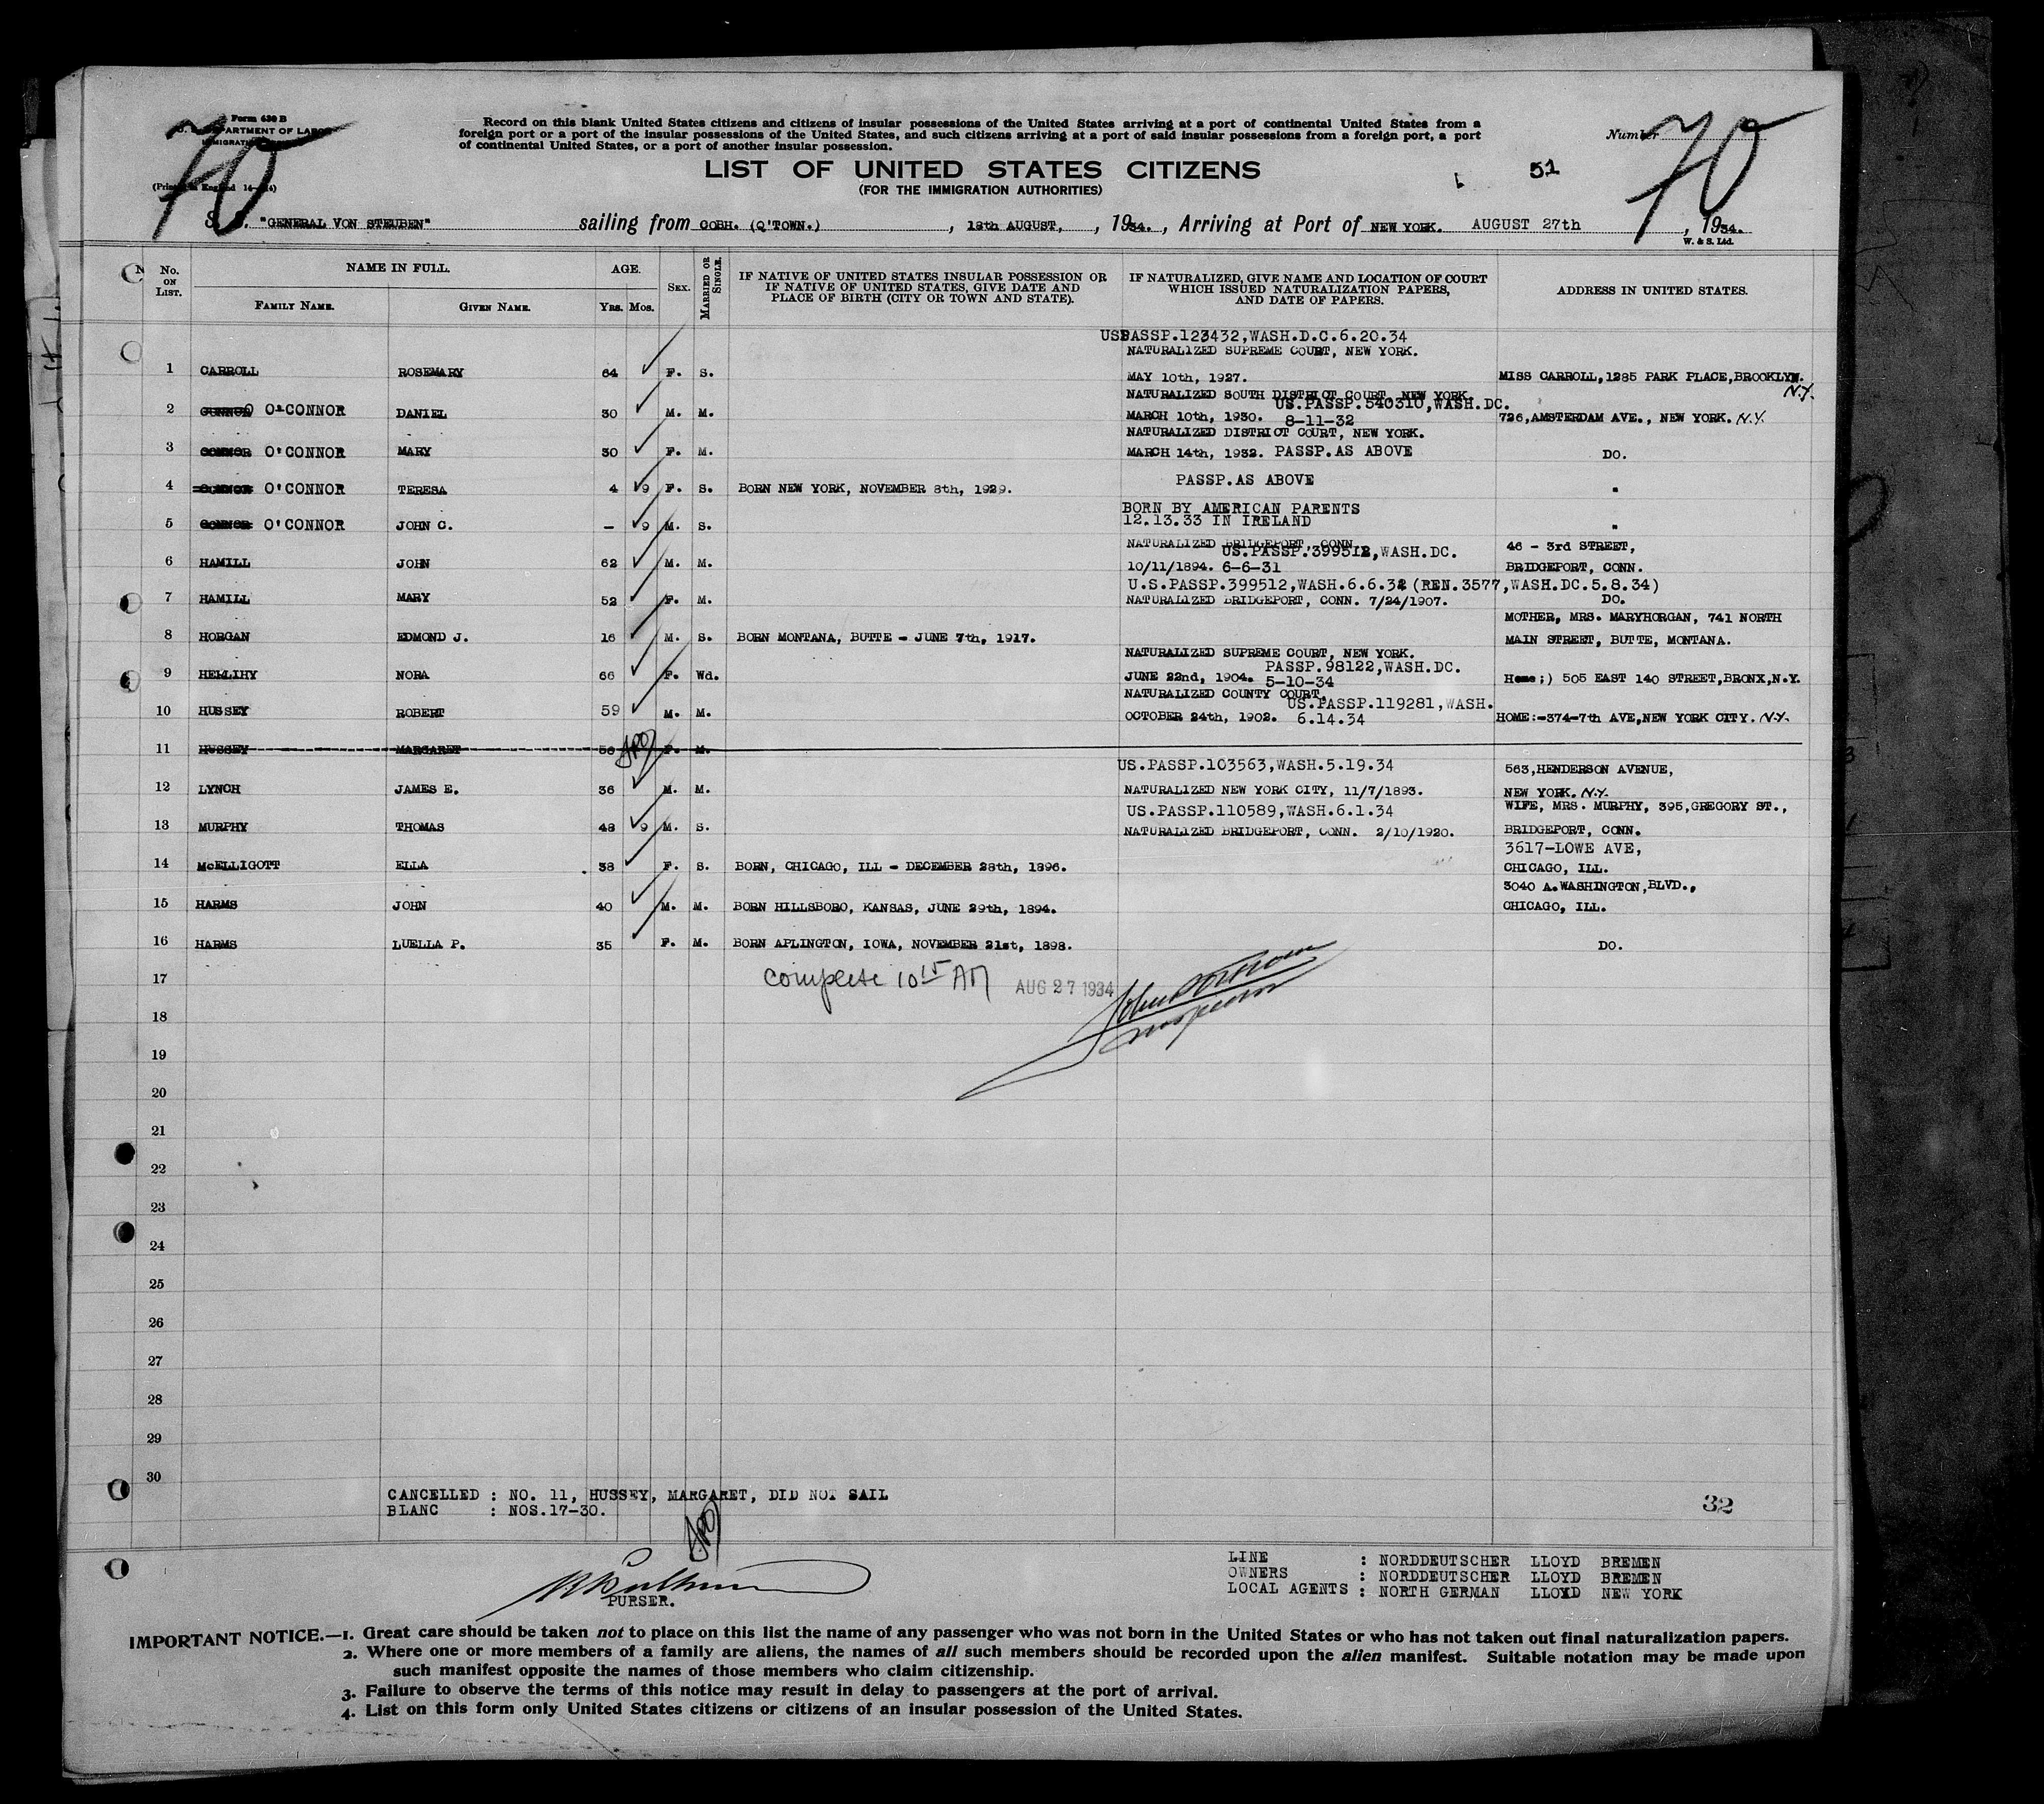 Form 630 B
U. S. DEPARTMENT OF LABOR
IMMIGRATION
(Printed in England 14—)
70
Record on this blank United States citizens and citizens of insular possessions of the United States arriving at a port of continental United States from a
foreign port or a port of the insular possessions of the United States, and such citizens arriving at a port of said insular possessions from a foreign port, a port
of continental United States, or a port of another insular possession.
Number
70
LIST OF UNITED STATES CITIZENS
51
(FOR THE IMMIGRATION AUTHORITIES)
S. S. "GENERAL VON STEUBEN" sailing from COBH. (Q'TOWN.), 18th AUGUST, , 1934. , Arriving at Port of NEW YORK. AUGUST 27th , 1934.
W. & S. Ltd.
No. ON LIST.
NAME IN FULL.
FAMILY NAME.
GIVEN NAME.
AGE.
YRS. MOS.
SEX.
MARRIED OR SINGLE.
IF NATIVE OF UNITED STATES INSULAR POSSESSION OR
IF NATIVE OF UNITED STATES, GIVE DATE AND
PLACE OF BIRTH (CITY OR TOWN AND STATE).
IF NATURALIZED, GIVE NAME AND LOCATION OF COURT
WHICH ISSUED NATURALIZATION PAPERS,
AND DATE OF PAPERS.
ADDRESS IN UNITED STATES.
USPASSP.123432,WASH.D.C.6.20.34
NATURALIZED SUPREME COURT, NEW YORK.
1 CARROLL ROSEMARY 64 F. S. MAY 10th, 1927. MISS CARROLL,1285 PARK PLACE,BROOKLYN.
N.Y.
NATURALIZED SOUTH DISTRICT COURT, NEW YORK.
US.PASSP.540310,WASH.DC.
2 CONNOR O'CONNOR DANIEL 30 M. M. MARCH 10th, 1930. 8-11-32 726,AMSTERDAM AVE., NEW YORK. N.Y.
NATURALIZED DISTRICT COURT, NEW YORK.
3 CONNOR O'CONNOR MARY 30 F. M. MARCH 14th, 1932. PASSP.AS ABOVE DO.
4 CONNOR O'CONNOR TERESA 4 9 F. S. BORN NEW YORK, NOVEMBER 8th, 1929. PASSP.AS ABOVE "
BORN BY AMERICAN PARENTS
5 CONNOR O'CONNOR JOHN C. — 9 M. S. 12.13.33 IN IRELAND "
NATURALIZED BRIDGEPORT, CONN. 46 - 3rd STREET,
US.PASSP.399512,WASH.DC.
6 HAMILL JOHN 62 M. M. 10/11/1894. 6-6-31 BRIDGEPORT, CONN.
U.S.PASSP.399512,WASH.6.6.31 (REN.3577,WASH.DC.5.8.34)
7 HAMILL MARY 52 F. M. NATURALIZED BRIDGEPORT, CONN. 7/24/1907. DO.
MOTHER, MRS. MARYHORGAN, 741 NORTH
8 HORGAN EDMOND J. 16 M. S. BORN MONTANA, BUTTE - JUNE 7th, 1917. MAIN STREET, BUTTE, MONTANA.
NATURALIZED SUPREME COURT, NEW YORK.
PASSP.98122,WASH.DC.
9 HELLIHY NORA 66 F. Wd. JUNE 22nd, 1904. 5-10-34 Home;) 505 EAST 140 STREET,BRONX,N.Y.
NATURALIZED COUNTY COURT,
US.PASSP.119281,WASH.
10 HUSSEY ROBERT 59 M. M. OCTOBER 24th, 1902. 6.14.34 HOME:-374-7th AVE,NEW YORK CITY. N.Y.
11 HUSSEY MARGARET 50 F. M.
US.PASSP.103563,WASH.5.19.34 563,HENDERSON AVENUE,
12 LYNCH JAMES E. 36 M. M. NATURALIZED NEW YORK CITY, 11/7/1893. NEW YORK. N.Y.
US.PASSP.110589,WASH.6.1.34 WIFE, MRS. MURPHY, 395,GREGORY ST.,
13 MURPHY THOMAS 48 9 M. S. NATURALIZED BRIDGEPORT, CONN. 2/10/1920. BRIDGEPORT, CONN.
3617-LOWE AVE,
14 McELLIGOTT ELLA 38 F. S. BORN, CHICAGO, ILL - DECEMBER 28th, 1896. CHICAGO, ILL.
3040 A.WASHINGTON,BLVD.,
15 HARMS JOHN 40 M. M. BORN HILLSBORO, KANSAS, JUNE 29th, 1894. CHICAGO, ILL.
16 HARMS LUELLA P. 35 F. M. BORN APLINGTON, IOWA, NOVEMBER 21st, 1898. DO.
17 complete 10 15 AM AUG 27 1934
Inspector
18
19
20
21
22
23
24
25
26
27
28
29
30
CANCELLED : NO. 11, HUSSEY, MARGARET, DID NOT SAIL
BLANC : NOS.17-30.
32
PURSER.
LINE : NORDDEUTSCHER LLOYD BREMEN
OWNERS : NORDDEUTSCHER LLOYD BREMEN
LOCAL AGENTS : NORTH GERMAN LLOYD NEW YORK
IMPORTANT NOTICE.—1. Great care should be taken not to place on this list the name of any passenger who was not born in the United States or who has not taken out final naturalization papers.
2. Where one or more members of a family are aliens, the names of all such members should be recorded upon the alien manifest. Suitable notation may be made upon
such manifest opposite the names of those members who claim citizenship.
3. Failure to observe the terms of this notice may result in delay to passengers at the port of arrival.
4. List on this form only United States citizens or citizens of an insular possession of the United States.